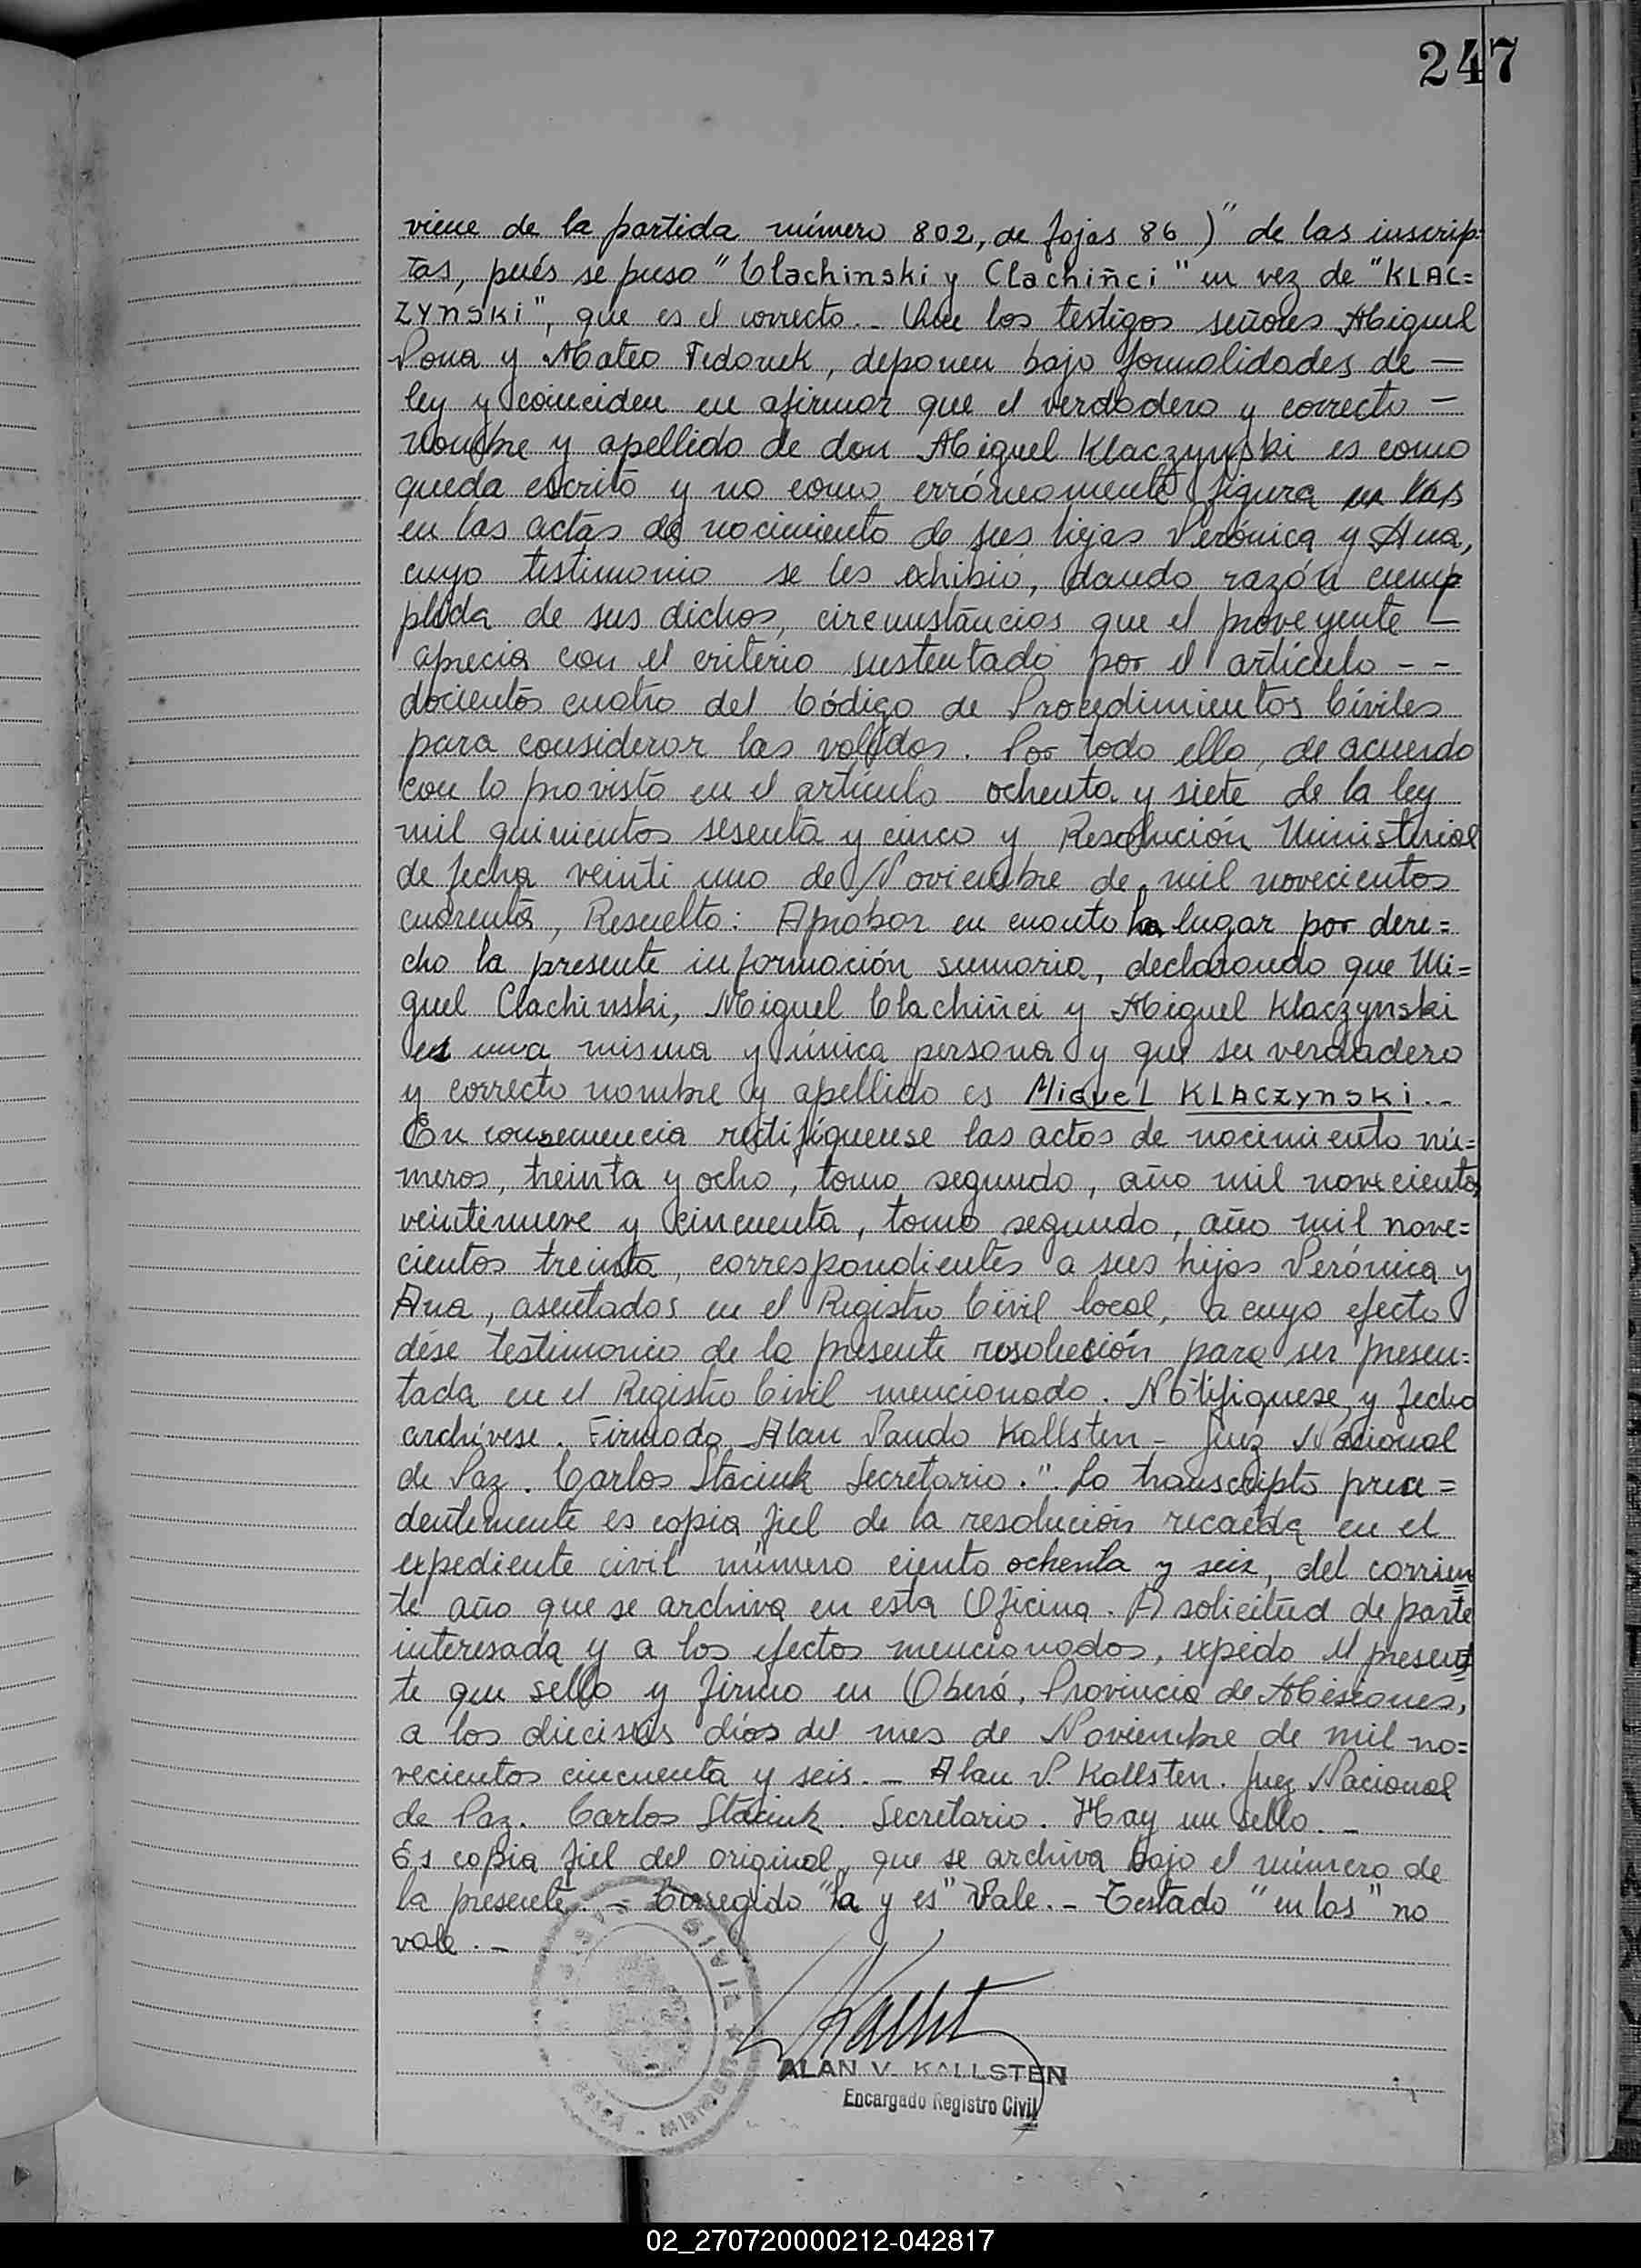 247
viene de la partida número 802, de fojas 86 )" de las inscrip=
tas, pués se puso "Clachinski y Clachiñci" en vez de "KLAC=
ZYNSKI", que es el correcto.- Que los testigos señores Miguel
y Mateo Fedoruk, deponen bajo formalidades de —
ley y coinciden en afirmar que el verdadero y correcto —
nombre y apellido de don Miguel Klaczynski es como
queda escrito y no como erróneamente figura en las
en las actas de nacimiento de sus hijas Verónica y Ana,
cuyo testimonio se les exhibió, dando razón cump
plida de sus dichos, circunstancias que el proveyente —
aprecia con el criterio sustentado por el artículo - -
docientos cuatro del Código de Procedimientos Civiles
para considerar las validas. Por todo ello, de acuerdo
con lo provisto en el artículo ochenta y siete de la ley
mil quinientos sesenta y cinco y Resolución Ministerial
de fecha veinti uno de Noviembre de mil novecientos
cuarenta, Resuelto: Aprobar en cuanto ha lugar por dere=
cho la presente información sumaria, declarando que Mi=
guel Clachinski, Miguel Clachiñci y Miguel Klaczynski
es una misma y única persona y que su verdadero
y correcto nombre y apellido es MIGUEL KLACZYNSKI.-
En consecuencia rectifíquense las actas de nacimiento nú=
meros, treinta y ocho, tomo segundo, año mil novecientos
veintinueve y cincuenta, tomo segundo, año mil nove=
cientos treinta, correspondientes a sus hijas Verónica y
Ana, asentados en el Registro Civil local, a cuyo efecto
dése testimonio de la presente resolución para ser presen=
tada en el Registro Civil mencionado. Notifíquese y fecho
archívese. Firmado Alan Kallsten - Juez Nacional
de Paz. Carlos Staciuk Secretario." Lo transcripto prece=
dentemente es copia fiel de la resolución recaída en el
expediente civil número ciento ochenta y seis, del corrien
te año que se archiva en esta Oficina. A solicitud de parte
interesada y a los efectos mencionados, expido el presen
te que sello y firmo en Oberá, Provincia de Misiones,
a los dieciseis días del mes de Noviembre de mil no=
vecientos cincuenta y seis.- Alan V. Kallsten. Juez Nacional
de Paz. Carlos Staciuk. Secretario. Hay un sello.-
Es copia fiel del original, que se archiva bajo el número de
la presente.- Corregido "ha y es" Vale.- Testado "en las" no
vale.-
ALAN V. KALLSTEN
Encargado Registro Civil
02_270720000212-042817